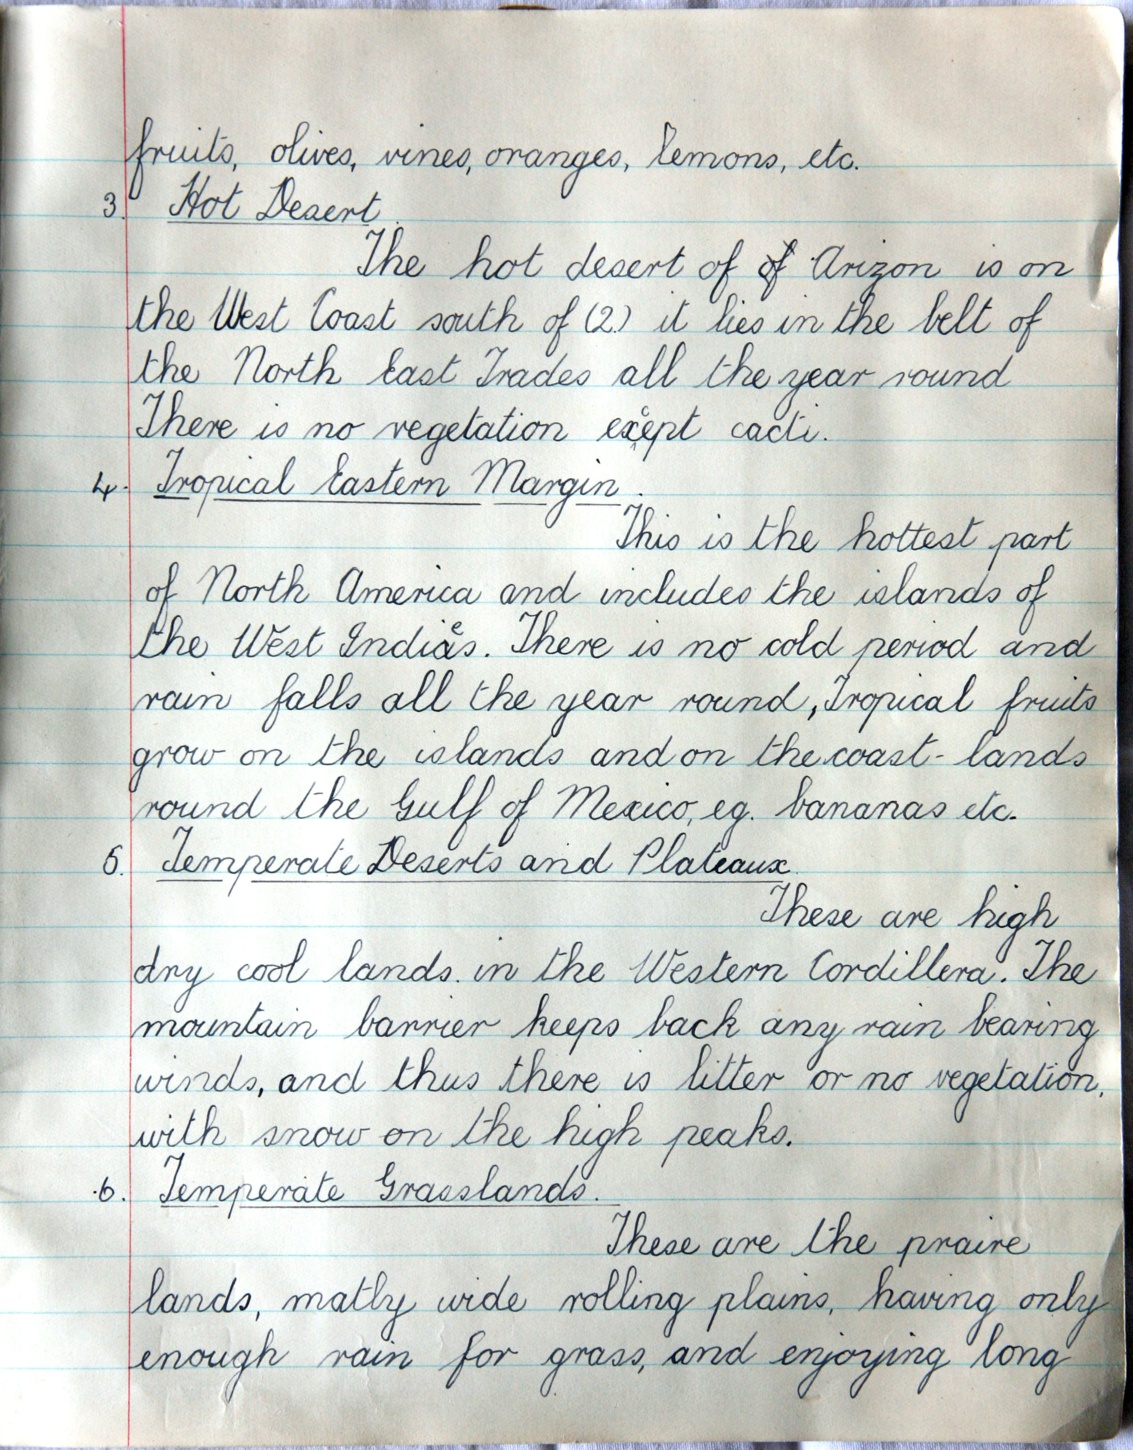 fruits, olives, vines, oranges, lemons, etc.
3. Hot Desert.
The hot desert of of Arizon is on
the West Coast south of (2) it lies in the belt of
the North East Trades all the year round
There is no vegetation except cacti.
4. Tropical Eastern Margin.
This is the hottest part
of North America and includes the islands of
the West Indies. There is no cold period and
rain falls all the year round, Tropical fruits
grow on the islands and on the coast-lands
round the Gulf of Mexico, eg. bananas etc.
5. Temperate Deserts and Plateaux.
These are high
dry cool lands. in the Western Cordillera. The
mountain barrier keeps back any rain bearing
winds, and thus there is litter or no vegetation,
with snow on the high peaks.
6. Temperate Grasslands.
These are the praire
lands, matly wide rolling plains, having only
enough rain for grass, and enjoying long